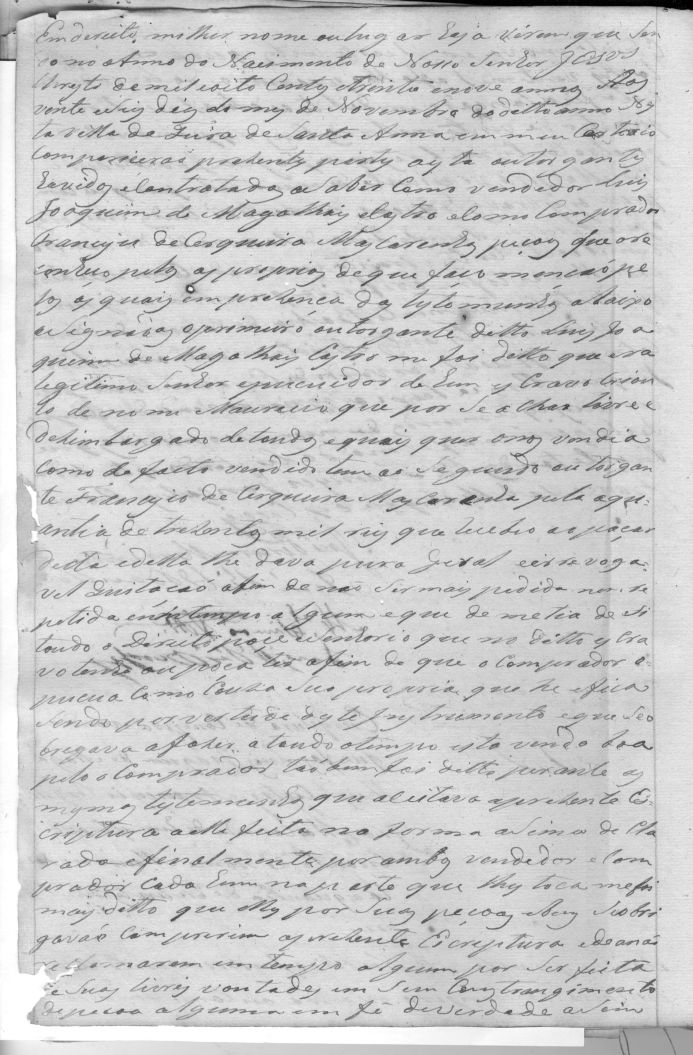 Em direito milhor nome e lugar haja virem que sen
do no Anno do Nacimento de Nosso Senhor JESUS
Chrysto de mil oito Centos etrinta enove annos Aos
vente e seis dias do mes de Novembro do ditto anno
ta villa da Feira de Santa Anna em meu Cartorio
Comparecerão prezentes partes aesta outorgantes
havidos e Contratados a Saber Como vendedor Luis
Joaquim de Magalhais eCastro e Como Comprador
Francisco de Cerqueira Mascarenhas pecoas que are
conheco pelos as proprias de que faco mencaó pe
los ás quais em prezenca das testemunhas abaixo
asignadas o primeiro outorgante ditto Luis Joa
quim de Magalhais Castro me foi ditto que era
legitimo Senhor epucuidor de hum escravo Criou
lo de nome Mauricio que por se achar livre e
dezimbargado de toudos equais quer onos vendia
como de facto vendido tem ao Segundo outorgan
te Francisco de Cerqueira Mascarenhas pela aqu
antia de trezentos mil reis que recebeo ao pacar
desta edella lhe dava pura geral eirrevoga
vel Quitacaó afim de não Ser mais pedida nem re
petida em tempo algum eque demetia de si
toudo o Direito poçe eSenhorio que no ditto escra
vo tenha ou poca ter afim de que o Comprador o
pucua Como Couza Sua propria que lhe efica
Sendo por vertude deste Instrumento eque Seo
bregava afazer atoudo otempo esta venda boa
pelo o Comprador taóbem foi ditto perante as
mesmas testemunhas que aceitava aprezente Es
criptura aelle feita na forma asima de Cla
rada efinalmente por ambos vendedor e Com
prador Cada hum na parte que lhes toca me foi
mais ditto que elles por Suas pecoas e bens Seobri
gavaó Comprirem aprezente Escriptura edenaó
reclamarem em tempo algum por Ser feita
de Suas livres vontades em Sem Constrangimento
de pecoa alguma em fé de verdade asim